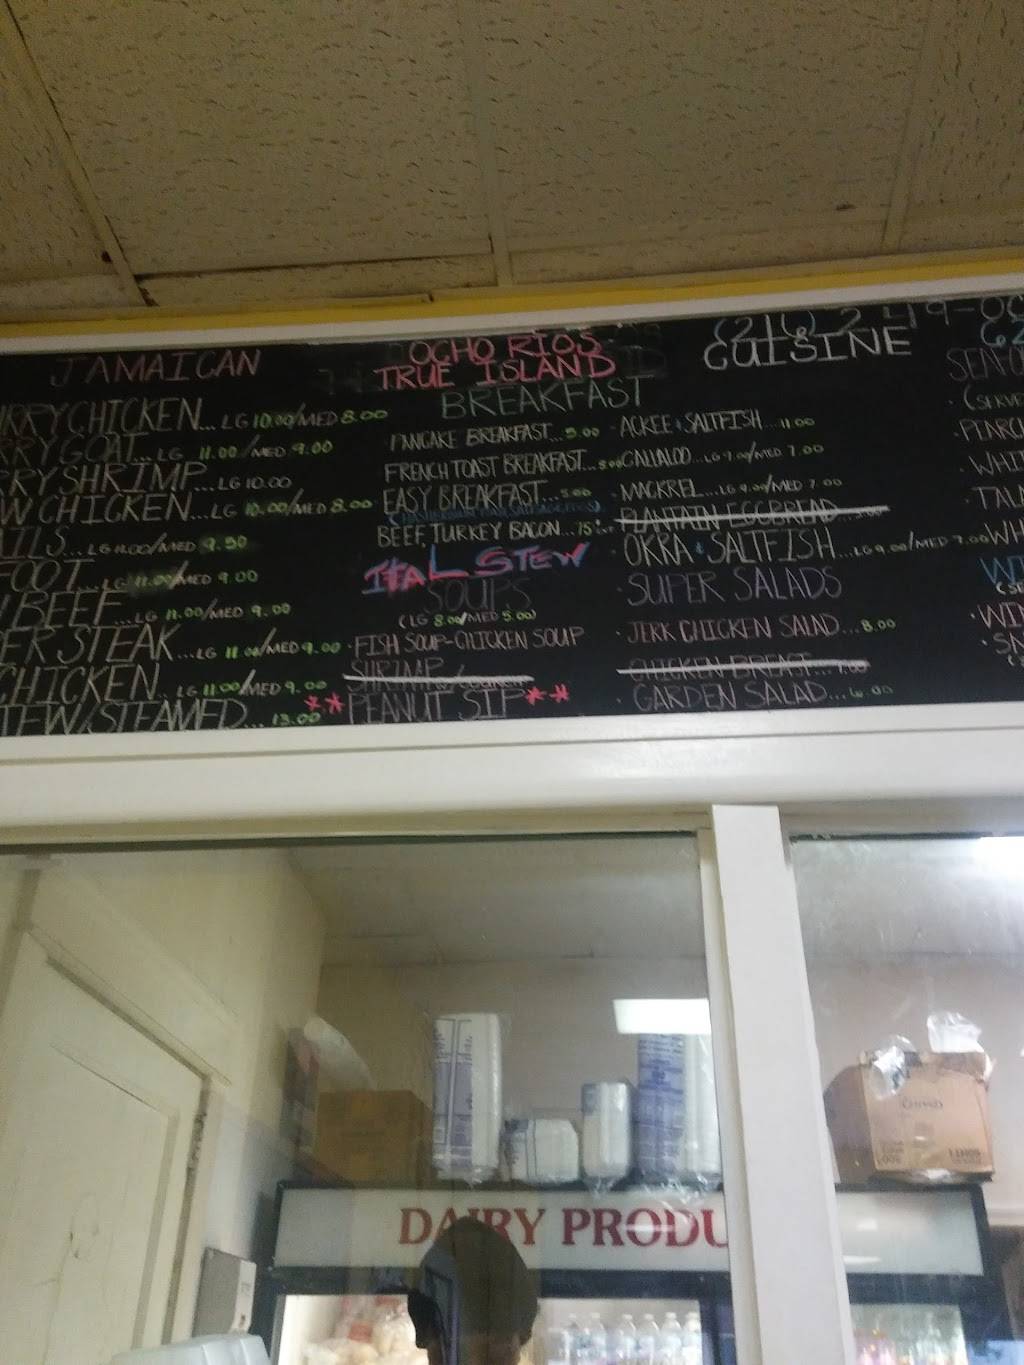 JAMAICAN
URRY CHICKEN... LG 10.00/MED 8.00
RRY GOAT... LG 11.00/MED 9.00
RRY SHRIMP... LG 10.00
W CHICKEN... LG 10.00/MED 8.00
AILS... LG 11.00/MED 9.50
FOOT... LG 11.00/MED 9.00
BEEF... LG 11.00/MED 9.00
PER STEAK... LG 11.00/MED 9.00
CHICKEN.. LG 11.00/MED 9.00
TEW/STEAMED... 13.00
OCHO RIOS
TRUE ISLAND
BREAKFAST
PANCAKE BREAKFAST... 5.00
FRENCH TOAST BREAKFAST... 5.00
EASY BREAKFAST... 5.00
BEEF, TURKEY BACON... 75¢
ITAL STEW
SOUPS
(LG 8.00/MED 5.00)
· FISH SOUP-CHICKEN SOUP
SHRIMP
**PEANUT SIP**
(216) 249-
CUISINE
· ACKEE & SALTFISH... 11.00
CALLALOO... LG 9.00/MED 7.00
· MACKREL... LG 9.00/MED 7.00
PLANTAIN EGGBREAD
· OKRA & SALTFISH... LG 9.00/MED 7.00
· SUPER SALADS
· JERK CHICKEN SALAD... 8.00
· CHICKEN BREAST... 7.00
· GARDEN SALAD... 6.00
SEAFO
· (SERVE
· PEARCH
· WHI
· WH
(SE
· WIN
DAIRY PRODU